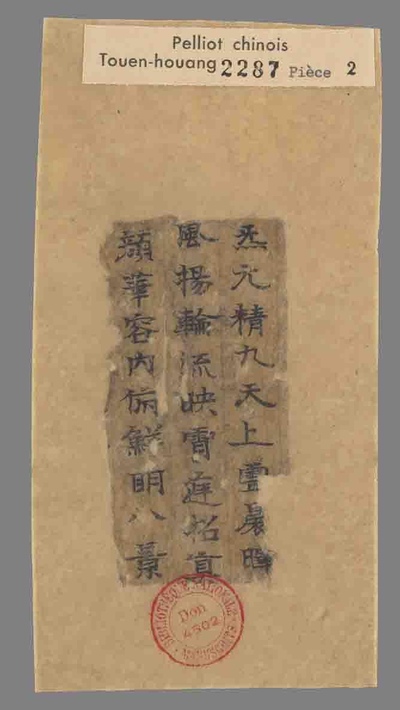 Pelliot chinois
Touen-houang 2287 Pièce 2
炁元精九天上靈晨
風揚輪流映霄庭招
顏華容內備鮮明八景
BIBLIOTHÈQUE NATIONALE
Don
4502
MANUSCRITS